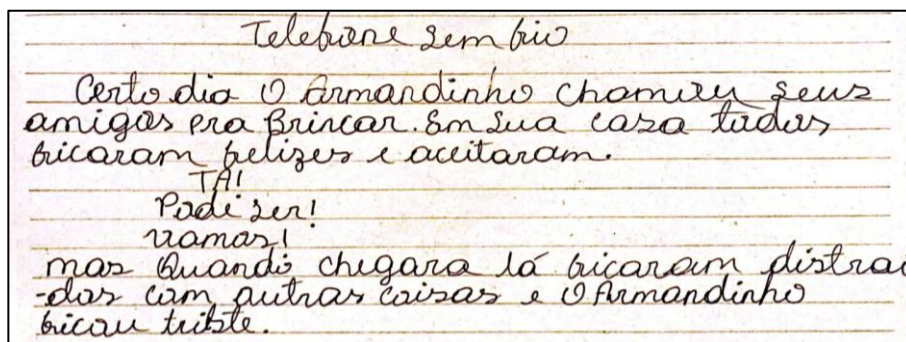 Telefone sem fio
Certo dia O Armandinho chamou seus
amigos pra Brincar. Em Sua casa todos
ficaram felizes e aceitaram.
TÁ!
Podi ser!
vamos!
mas Quando chegara lá ficaram distrai
-dos com outras coisas e O Armandinho
ficou triste.